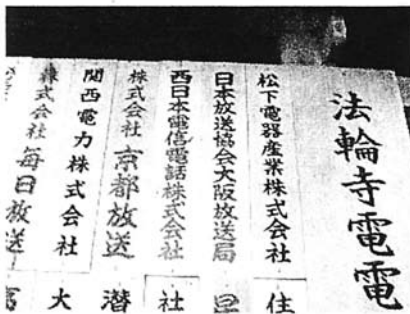 法輪寺電電
松下電器産業株式会社
日本放送協会大阪放送局
西日本電信電話株式会社
株式会社 京都放送
関西電力株式会社
株式会社 毎日放送
住
社
潜
大